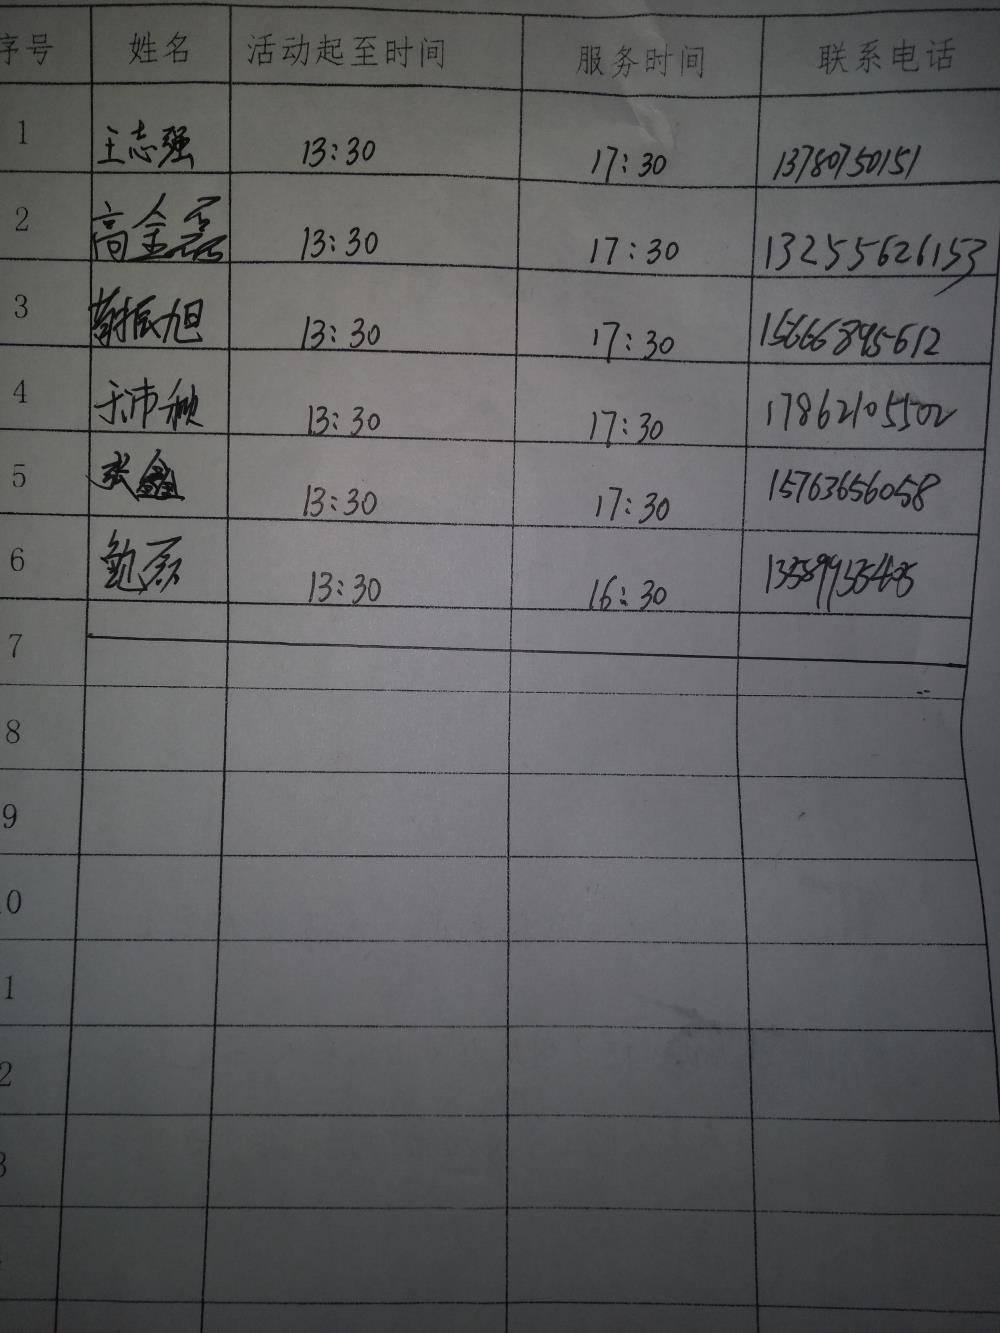 序号 姓名 活动起至时间 服务时间 联系电话
1 王志强 13:30 17:30 13780750151
2 高金磊 13:30 17:30 13255626153
3 旭 13:30 17:30 15666895612
4 于沛 13:30 17:30 17862105502
5 张鑫 13:30 17:30 15763656058
6 鲍磊 13:30 16:30
7
8
9
0
1
2
3